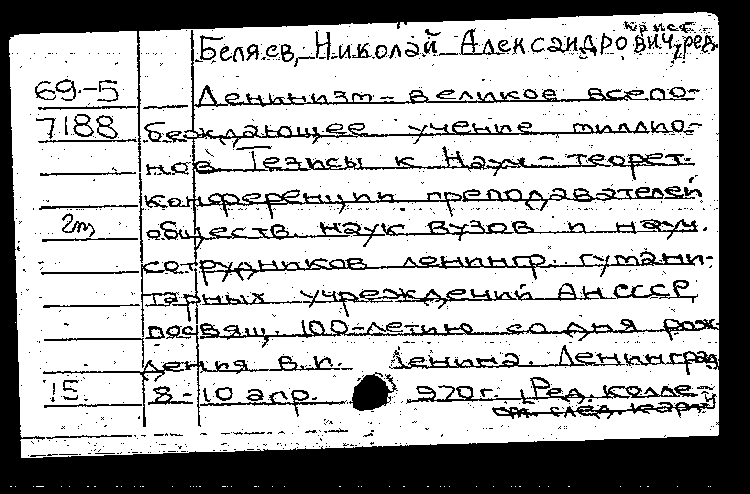 Беляев, Николай Александрович, ред.
69-5 Ленинизм - великое всепо-
7188 беждающее учение миллио-
нов Тезисы к Науч.-теорет.
конференции преподавателей
2т обществ. наук вузов и науч.
сотрудников ленингр. гумани-
тарных учреждений АН СССР,
посвящ. 100-летию со дня рож-
дения В.И. Ленина. Ленинград
15. 8-10 апр. 970г. Ред. колле-
см. след. карт